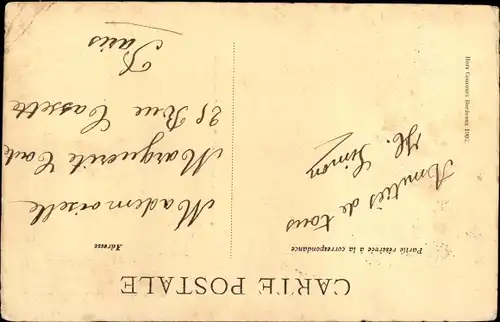 CARTE POSTALE
Partie réservée à la correspondance
Adresse
Amitiés de tous
H. Simon
Mademoiselle
Marguerite
25 Rue Cassette
Paris
Hors Concours Bordeaux 1907.